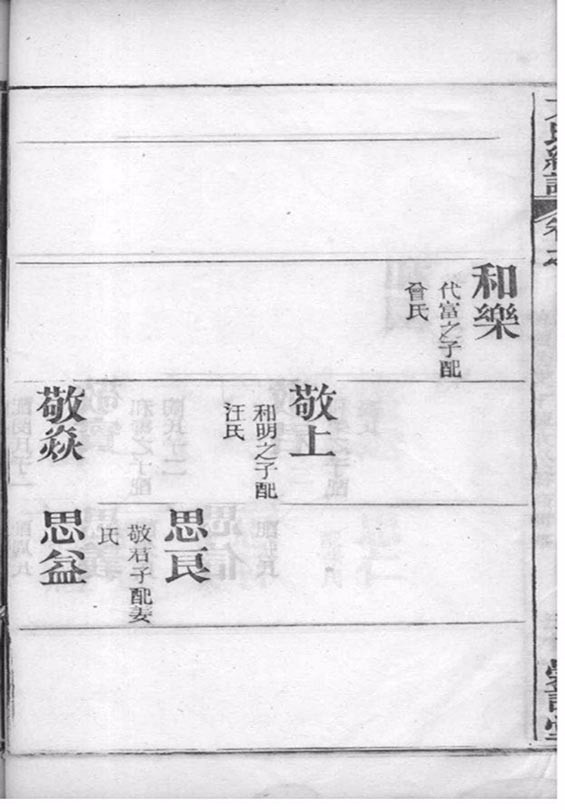 和樂
代富之子配
曾氏
敬上
和明之子配
汪氏
敬焱
思良
敬君子配姜
氏
思益